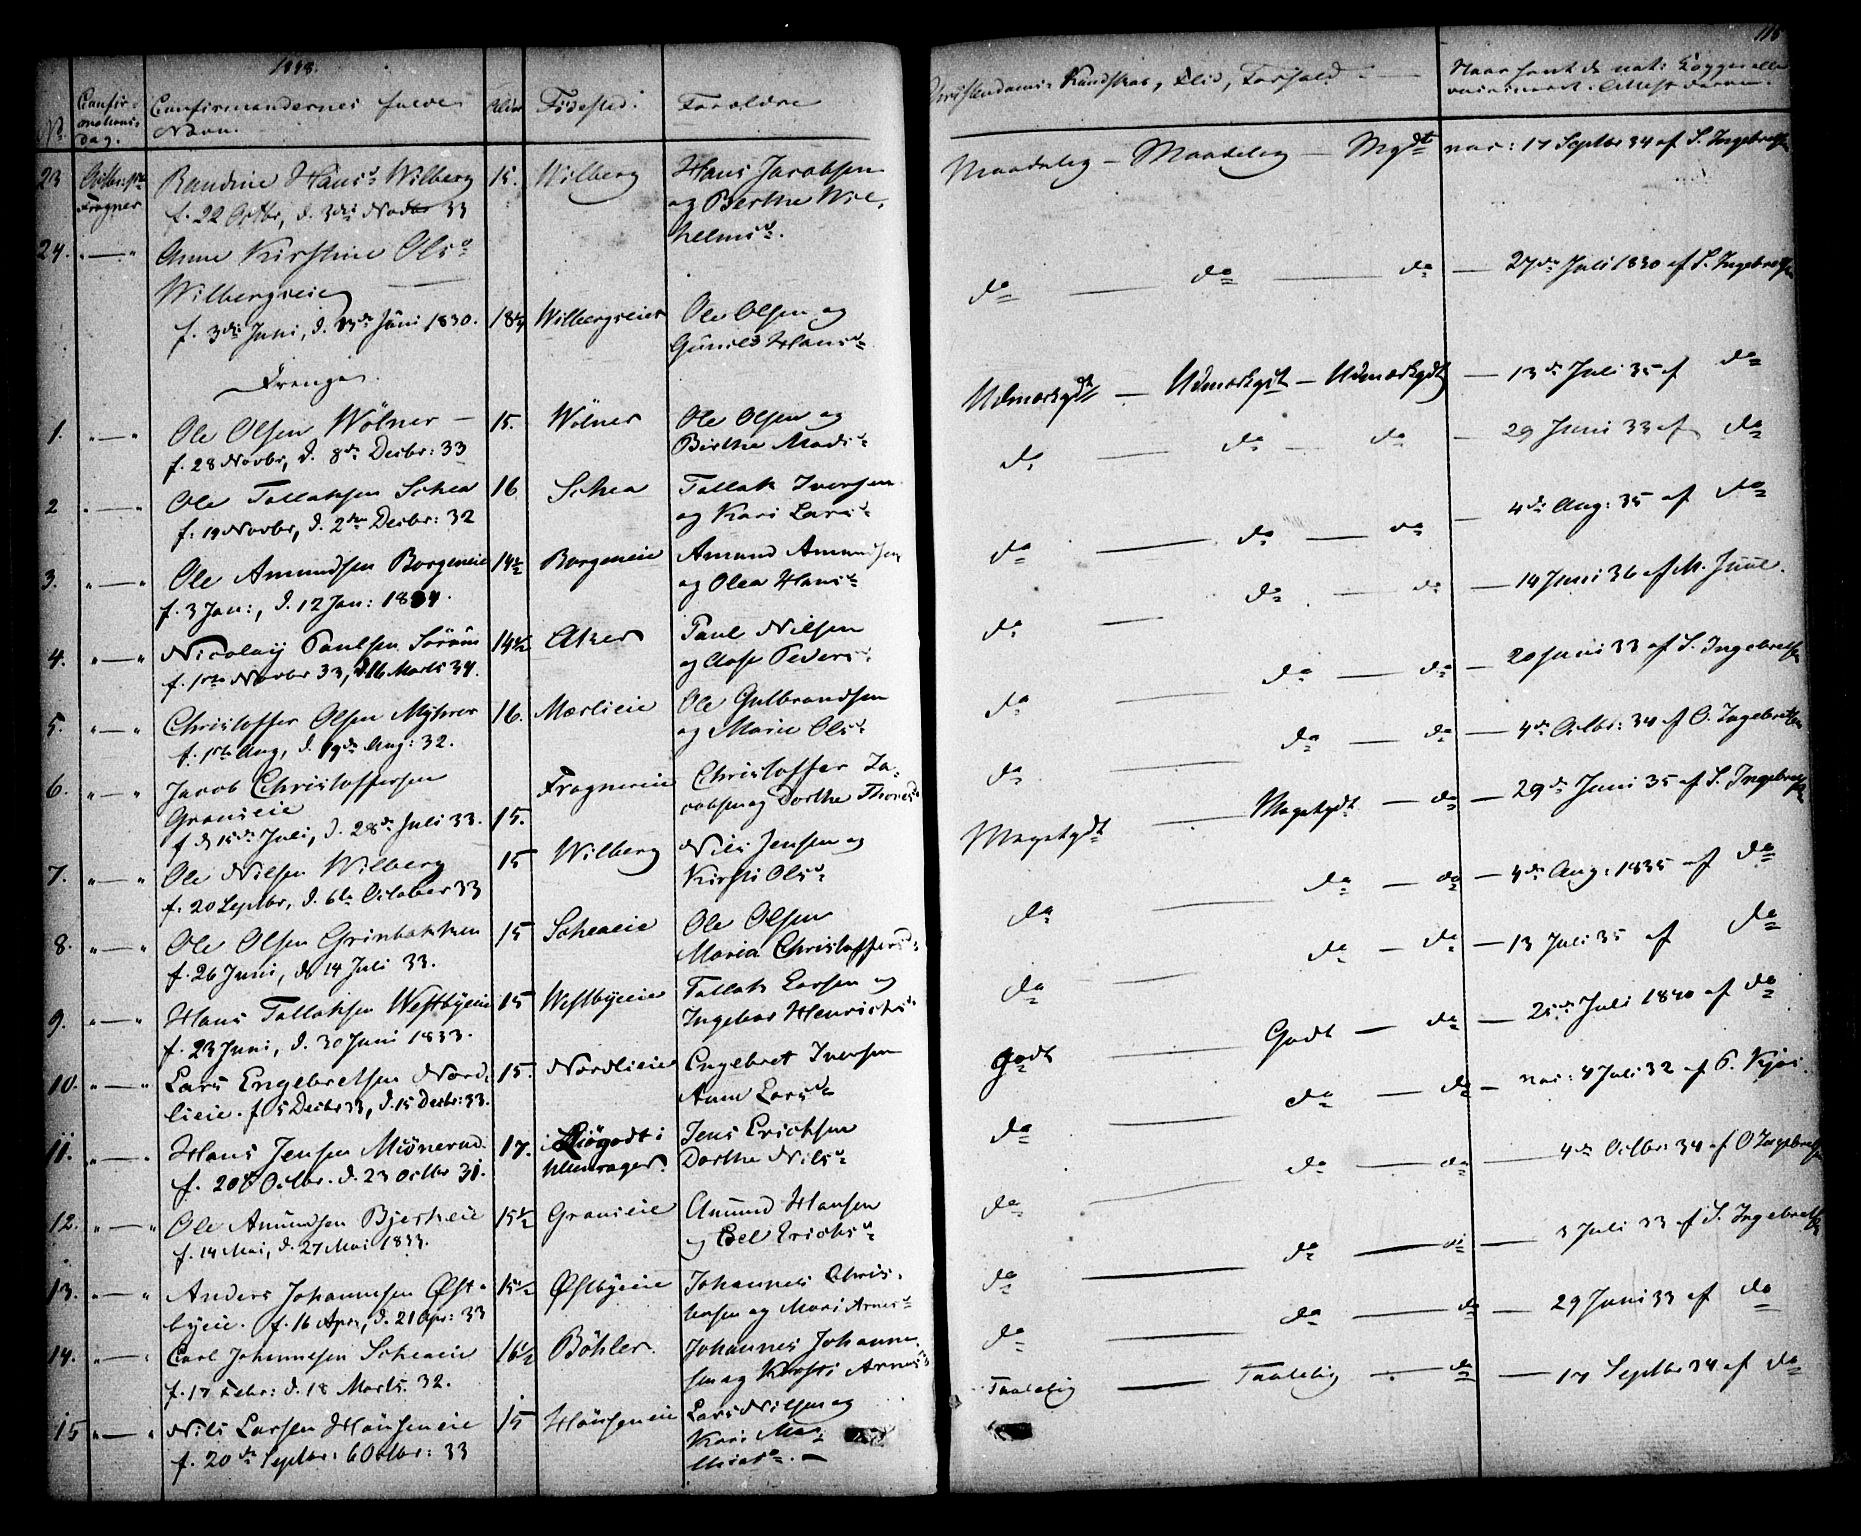 1848.
No
Confirmations-
dag.
Confirmandernes fulde
Navn.
Alder
Fødested.
Forældre
23 Octbr: 1ste
Frogner
Randine Hansd. Wilberg 15. Wilberg Hans Jacobsen
f. 22 Octbr, d. 3die Novbr 33 og Berthe Wil-
helmsd.
24. " — " Anne Kirstine Olsd.
Wilbergseie
f. 3die Juni, d. 13de Juni 1830. 18¼ Wilbergseier Ole Olsen og
Gunild Hansd.
Drenge.
1. " — " Ole Olsen Wölner — 15. Wölner Ole Olsen og
f. 28 Novbr, d. 8de Decbr: 33 Birthe Madsd.
2 " — " Ole Tollaksen Schea 16 Schea Tollak Iversen
f. 19 Novbr, d. 2den Decbr: 32 og Kari Larsd.
3. " — " Ole Amundsen Borgeneie 14½ Borgeneie Amund Amundsen
f. 3 Jan:, d. 12 Jan: 1834. og Olea Hansd.
4. " — " Nicolaij Paulsen Sörum 14½ Aker Paul Nilsen
f. 1ste Novbr 33, d. 16 Marts 34. og Aase Peders.
5. " — " Christoffer Olsen Myhrer 16. Mærlieie Ole Gulbrandsen
f. 1ste Aug, d. 19de Aug: 32. og Marie Olsd.
6. " — " Jacob Christoffersen Frognereie Christoffer Ja-
Graneie cobsen og Dorthe Thoresd
f. d. 15de Juli, d. 28de Juli 33. 15.
7. " — " Ole Nilsen Wilberg 15 Wilberg Nils Jensen og
f. 20 Septbr, d. 6te October 33 Kirsti Olsd.
8. " — " Ole Olsen Grinbakken 15 Scheaeie Ole Olsen
f. 26 Juni, d. 14 Juli 33. Maria Christoffersd.
9. " — " Hans Tollaksen Westbyeie 15 Westbyeie Tollak Larsen og
f. 23 Juni, d. 30 Juni 1833. Ingebor Henrichsd.
10. " — " Lars Engebretsen Nord- 15. Nordlieie Engebret Iversen
lieie. f. 5 Decbr 33, d. 15 Decbr: 33. Anne Larsd.
11. " — " Hans Jensen Miönerud. 17. i Ullensager. Jens Erichsen
f. 20 Octbr. d. 23 Octbr 31. Dorthe Nilsd.
12. " — " Ole Amundsen Bjerkeie 15½ Graneieie Amund Hansen
f. 14 Mai, d. 27 Mai 1833. og Edel Erichsd.
13. " — " Anders Johannesen Øst- 15½ Østbyeie Johannes Chris-
byeie. f. 16 Apr, d. 21 Apr: 33 tensen og Mari Arnesd.
14. " — " Carl Johannesen Scheaeie 16½ Böhler. Johannes Johanne-
f. 17 Febr: d. 18 Marts. 32. sen og Kirsti Arnesd
15 " — " Nils Larsen Hönseneie 15 Hönseneie Lars Nilsen og
f. 20de Septbr: 6 Octbr: 33 Kari Ma-
thiesd. —
116
Christendoms-Kundskab, Flid, Forhold.
Naar havt de nat: Kopper eller
vaccineret. Attest derom.
Maadelig — Maadelig — Mgdt nat: 17 Septbr 34 af S. Ingebretsen
do — do — do — 27de Juli 1830 af S. Ingebretsen
Udmærkgdt — Udmærkgdt — Udmærkgdt — 13de Juli 35 af do
do — do — do — 29 Juni 33 af do
do — do — do — 4de Aug: 35 af do
do — do — do — 14 Juni 36 af M. Juul.
do — do — do — 20 Juni 33 af S. Ingebretsen
do — do — do — 4de Octbr: 34 af O. Ingebretsen
Megetgdt — Megetgdt — do — 29de Juni 35 af S. Ingebretsen
do — do — do — 4de Aug: 1835 af do
do — do — do — 13 Juli 35 af do
Godt — Godt — do — 25de Juli 1840 af do
do — do — do — nat: 4 Juli 32 af P. Kjos.
do — do — do — 4de Octbr: 34 af O Ingebretsen
do — do — do — 3 Juli 33 af S. Ingebretsen
do — do — do — 29 Juni 33 af do
Taalelig — Taalelig — do — 17 Septbr 34 af do